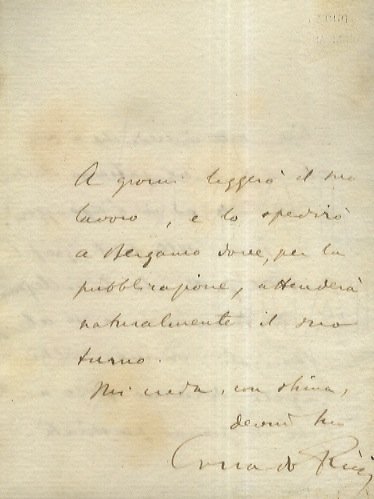 A giorni leggerò il suo
lavoro, e lo spedirò
a Bergamo dove, per la
pubblicazione, attenderà
naturalmente il suo
turno.
Mi creda, con stima,
devmo suo
Corrado Ricci